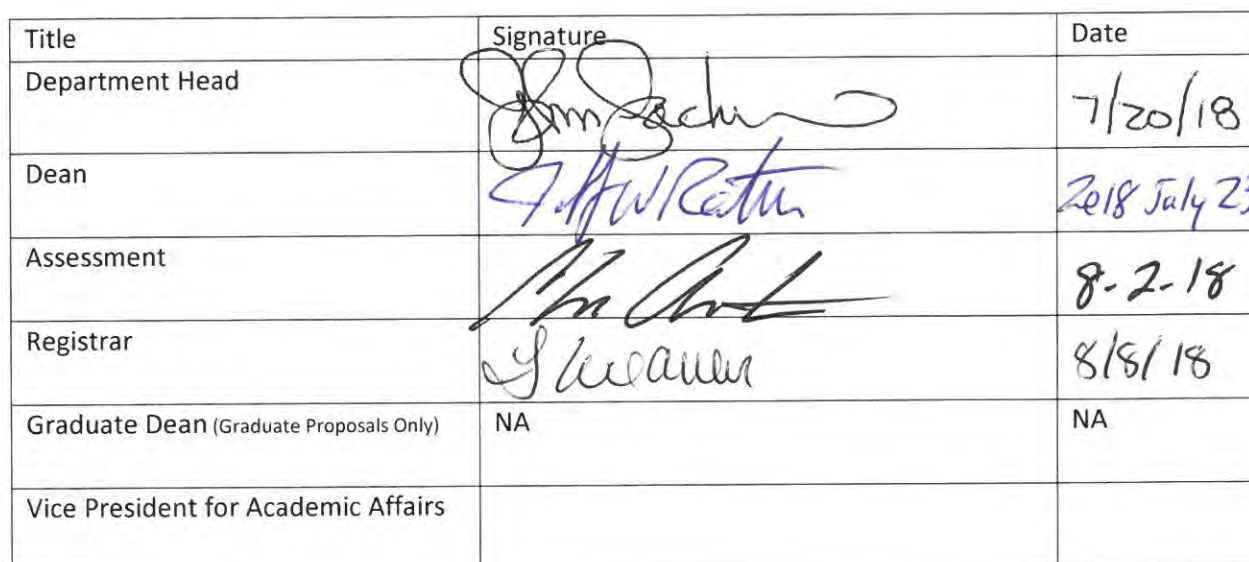 Title Signature Date
Department Head 7/20/18
Dean 2018 July 23
Assessment 8-2-18
Registrar 8/8/18
Graduate Dean (Graduate Proposals Only) NA NA
Vice President for Academic Affairs